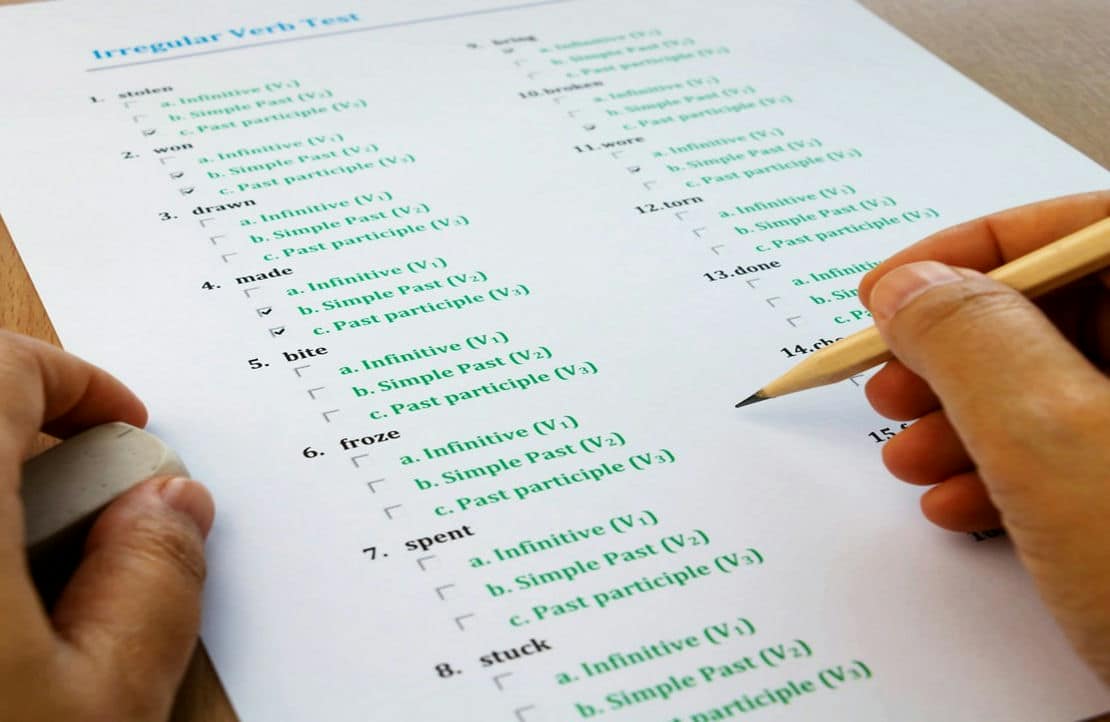 Irregular Verb Test
1. stolen
a. Infinitive (V₁)
b. Simple Past (V₂)
c. Past participle (V₃)
2. won
a. Infinitive (V₁)
b. Simple Past (V₂)
c. Past participle (V₃)
3. drawn
a. Infinitive (V₁)
b. Simple Past (V₂)
c. Past participle (V₃)
4. made
a. Infinitive (V₁)
b. Simple Past (V₂)
c. Past participle (V₃)
5. bite
a. Infinitive (V₁)
b. Simple Past (V₂)
c. Past participle (V₃)
6. froze
a. Infinitive (V₁)
b. Simple Past (V₂)
c. Past participle (V₃)
7. spent
a. Infinitive (V₁)
b. Simple Past (V₂)
c. Past participle (V₃)
8. stuck
a. Infinitive (V₁)
b. Simple Past (V₂)
participle (V₃)
9. bring
a. Infinitive (V₁)
b. Simple Past (V₂)
c. Past participle (V₃)
10.broken
a. Infinitive (V₁)
b. Simple Past (V₂)
c. Past participle (V₃)
11.wore
a. Infinitive (V₁)
b. Simple Past (V₂)
c. Past participle (V₃)
12.torn
a. Infinitive (V₁)
b. Simple Past (V₂)
c. Past participle (V₃)
13.done
a.
b.
c.
14.
15.